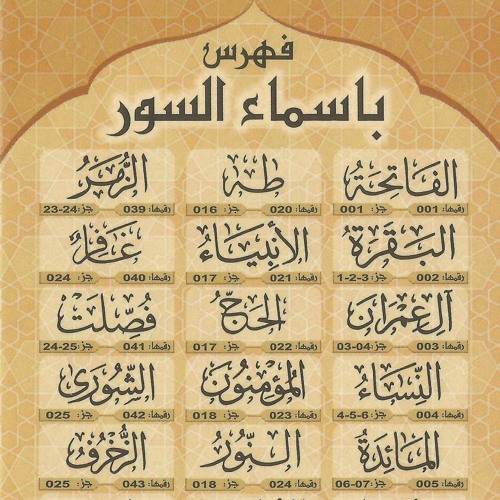 فهرس
باسماء السور
الفَاتِحَةُ
رقمها: 001 جزء: 001
طه
رقمها: 020 جزء: 016
الزُّمَرُ
رقمها: 039 جزء: 24-23
البَقَرَةُ
رقمها: 002 جزء: 3-2-1
الأنبِيَاءُ
رقمها: 021 جزء: 017
غَافِرُ
رقمها: 040 جزء: 024
آل عِمْرَان
رقمها: 003 جزء: 04-03
الحَجُّ
رقمها: 022 جزء: 017
فُصِّلَت
رقمها: 041 جزء: 25-24
النِّسَاءُ
رقمها: 004 جزء: 6-5-4
المُؤمِنُون
رقمها: 023 جزء: 018
الشّورى
رقمها: 042 جزء: 025
المَائدَةُ
رقمها: 005 جزء: 07-06
النّورُ
رقمها: 024 جزء: 018
الزُّخرُفُ
رقمها: 043 جزء: 025